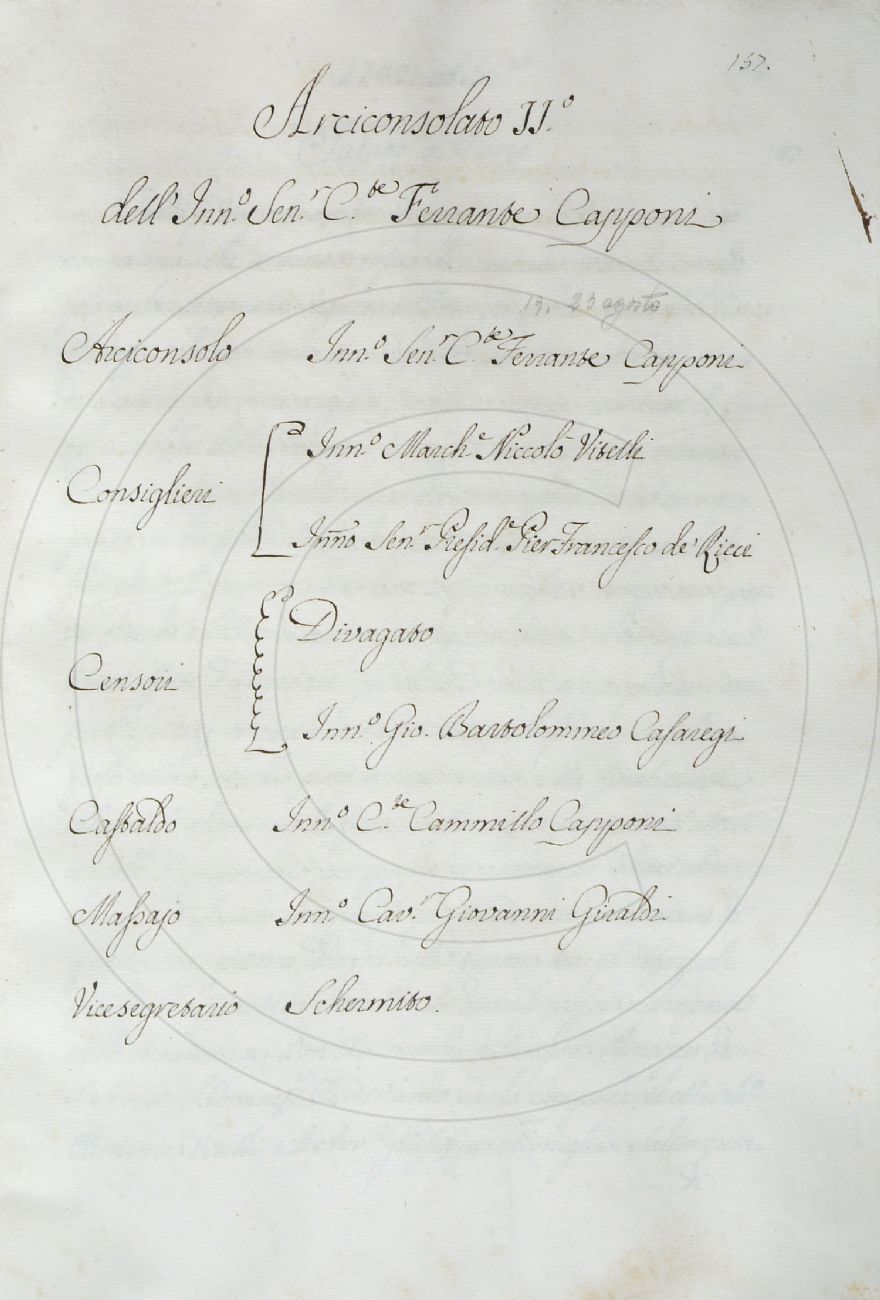 157.
Arciconsolato II.º
dell' Inn.º Sen.r C.te Ferrante Capponi
23 agosto
Arciconsolo Inn.º Sen.r C.te Ferrante Capponi
Inn.º March.e Niccolò Vitelli
Consiglieri
Inño Sen.r Presid.e Pier Francesco de' Ricci
Divagato
Censori
Inn.º Gio. Bartolommeo Casaregi
Castaldo Inn.º C.te Cammillo Capponi
Massajo Inn.º Cav.r Giovanni Giraldi
Vicesegretario Schermito.